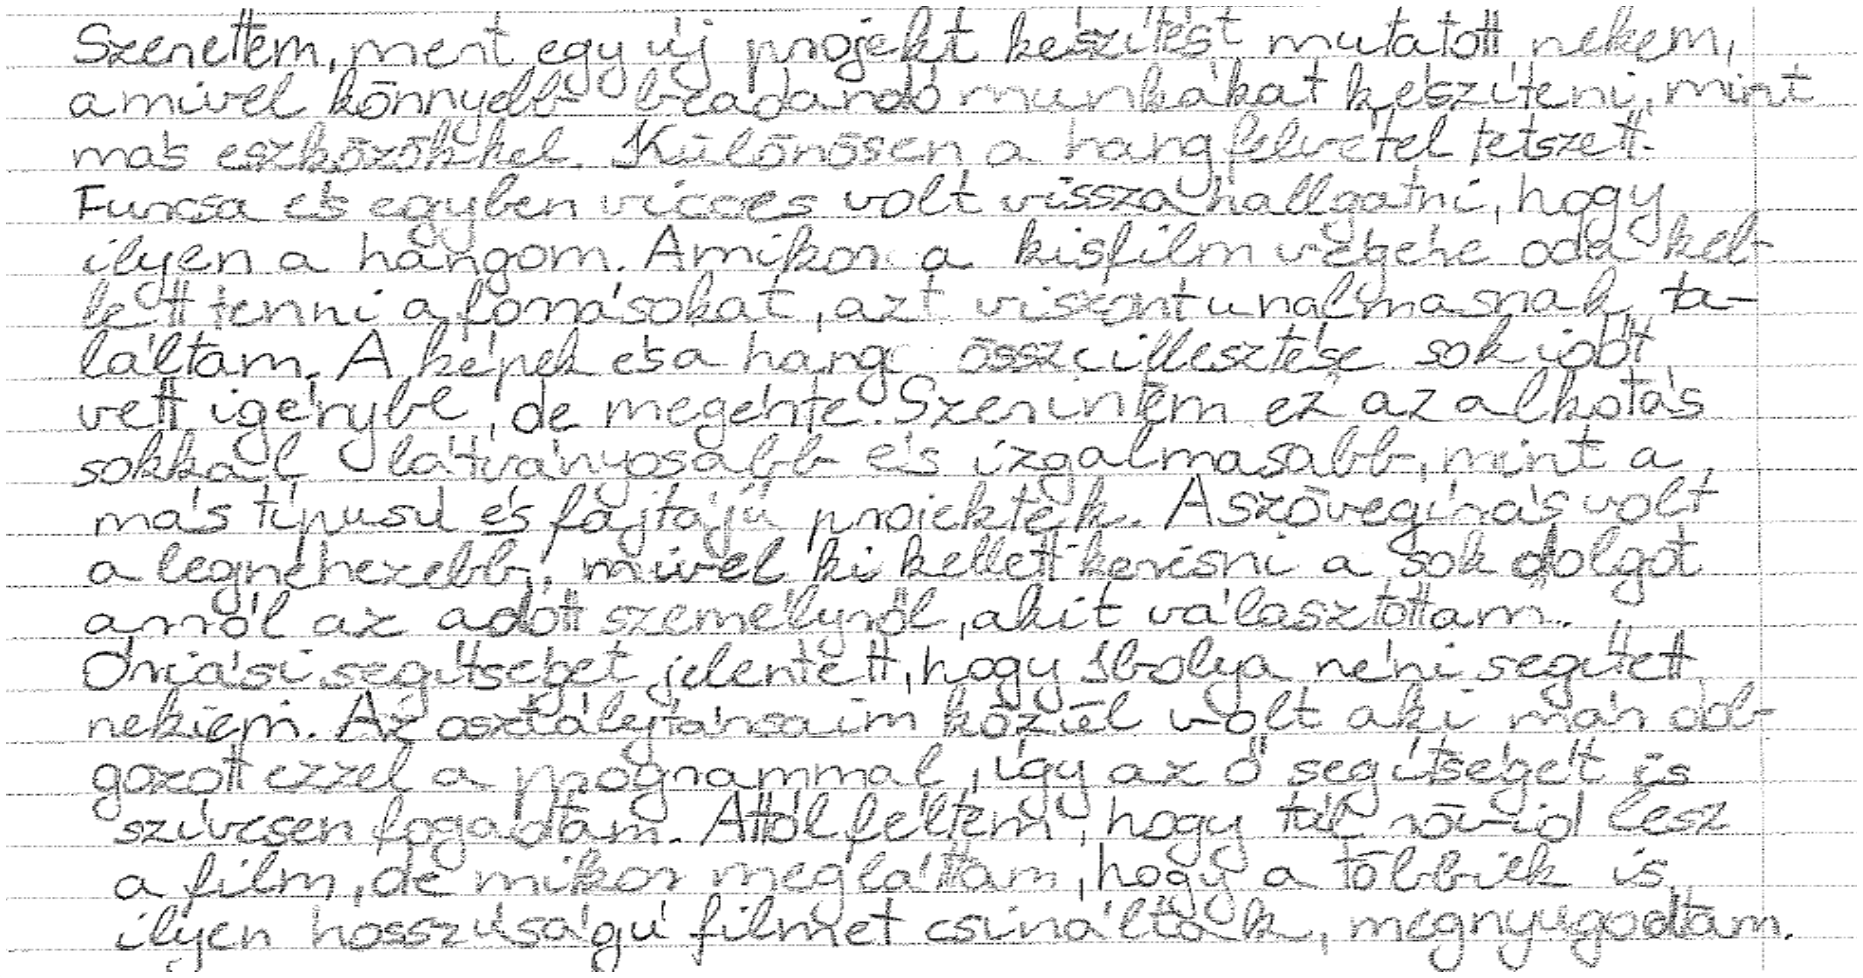 Szerettem, mert egy új projekt készítést mutatott nekem,
amivel könnyebb beadandó munkákat készíteni, mint
más eszközökkel. Különösen a hangfelvétel tetszett.
Furcsa és egyben vicces volt visszahallgatni, hogy
ilyen a hangom. Amikor a kisfilm végére oda kel-
lett tenni a forrásokat, azt viszont unalmasnak ta-
láltam. A képek és a hang összeillesztése sok időt
vett igénybe, de megérte. Szerintem ez az alkotás
sokkal látványosabb és izgalmasabb, mint a
más típusú és fajtájú projektek. A szövegírás volt
a legnehezebb, mivel ki kellett keresni a sok dolgot
arról az adott személyről, akit választottam.
Óriási segítséget jelentett, hogy Ibolya néni segített
nekem. Az osztálytársaim közül volt aki már dol-
gozott ezzel a programmal, így az ő segítségét is
szívesen fogadtam. Attól féltem, hogy túl rövid lesz
a film, de mikor megláttam, hogy a többiek is
ilyen hosszúságú filmet csináltak, megnyugodtam.